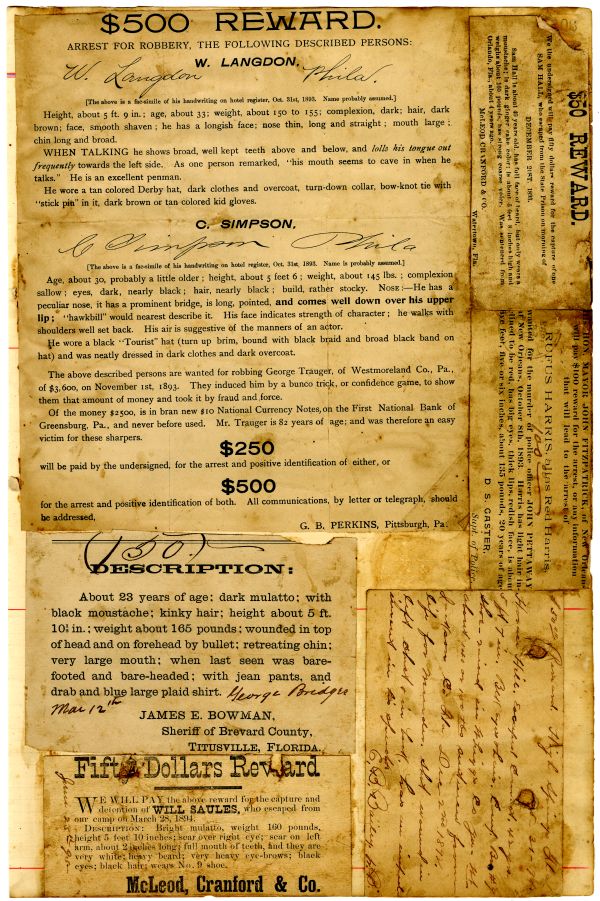 $500 REWARD.
ARREST FOR ROBBERY, THE FOLLOWING DESCRIBED PERSONS:
W. LANGDON,
W. Langdon Phila.
[The above is a fac-simile of his handwriting on hotel register, Oct. 31st, 1893. Name probably assumed.]
Height, about 5 ft. 9 in.; age, about 33; weight, about 150 to 155; complexion, dark; hair, dark
brown; face, smooth shaven; he has a longish face; nose thin, long and straight; mouth large;
chin long and broad.
WHEN TALKING he shows broad, well kept teeth above and below, and lolls his tongue out
frequently towards the left side. As one person remarked, "his mouth seems to cave in when he
talks." He is an excellent penman.
He wore a tan colored Derby hat, dark clothes and overcoat, turn-down collar, bow-knot tie with
"stick pin" in it, dark brown or tan colored kid gloves.
C. SIMPSON,
C Simpson Phila
[The above is a fac-simile of his handwriting on hotel register, Oct. 31st, 1893. Name is probably assumed.]
Age, about 30, probably a little older; height, about 5 feet 6; weight, about 145 lbs.; complexion
sallow; eyes, dark, nearly black; hair, nearly black; build, rather stocky. NOSE:—He has a
peculiar nose, it has a prominent bridge, is long, pointed, and comes well down over his upper
lip; "hawkbill" would nearest describe it. His face indicates strength of character; he walks with
shoulders well set back. His air is suggestive of the manners of an actor.
He wore a black "Tourist" hat (turn up brim, bound with black braid and broad black band on
hat) and was neatly dressed in dark clothes and dark overcoat.
The above described persons are wanted for robbing George Trauger, of Westmoreland Co., Pa.,
of $3,600, on November 1st, 1893. They induced him by a bunco trick, or confidence game, to show
them that amount of money and took it by fraud and force.
Of the money $2500, is in bran new $10 National Currency Notes, on the First National Bank of
Greensburg, Pa., and never before used. Mr. Trauger is 82 years of age; and was therefore an easy
victim for these sharpers.
$250
will be paid by the undersigned, for the arrest and positive identification of either, or
$500
for the arrest and positive identification of both. All communications, by letter or telegraph, should
be addressed,
G. B. PERKINS, Pittsburgh, Pa.
$50 REWARD.
We the undersigned will pay fifty dollars reward for the capture of one
SAM HALL, who escaped from the State Prison on morning of
DECEMBER 21ST, 1893.
Sam Hall is about 40 years old, has full face of beard, but only wears a
moustache; is dark ginger cake color; is about 5 feet 8 inches high and
weighs about 160 pounds, has strong coarse voice. Was sentenced from
Orlando, Fla., about 4 years ago.
McLEOD CRANFORD & CO.
Watertown, Fla.
MAYOR JOHN FITZPATRICK, of New Orleans
will pay $100 reward for the arrest, or any information
that will lead to the arrest of
RUFUS HARRIS, alias Red Harris,
wanted for the murder of police officer JOHN PETTAWAY
of New Orleans, October 8th, 1893. Harris has light hair in-
clined to be red, has big eyes, thick lips, redish face, is about
four feet five or six inches, about 135 pounds, 20 years of age
D. S. GASTER,
Supt. of Police
150.
DESCRIPTION:
About 23 years of age; dark mulatto; with
black moustache; kinky hair; height about 5 ft.
10½ in.; weight about 165 pounds; wounded in top
of head and on forehead by bullet; retreating chin;
very large mouth; when last seen was bare-
footed and bare-headed; with jean pants, and
drab and blue large plaid shirt. George Bridges
Mar 12th
JAMES E. BOWMAN,
Sheriff of Brevard County,
TITUSVILLE, FLORIDA.
Fifty Dollars Reward
WE WILL PAY the above reward for the capture and
detention of WILL SAULES, who escaped from
our camp on March 28, 1894.
DESCRIPTION: Bright mulatto, weight 160 pounds,
height 5 feet 10 inches; scar over right eye; scar on left
arm, about 2 inches long; full mouth of teeth, and they are
very white; heavy beard; very heavy eye-brows; black
eyes; black hair; wears No. 9 shoe.
McLeod, Cranford & Co.